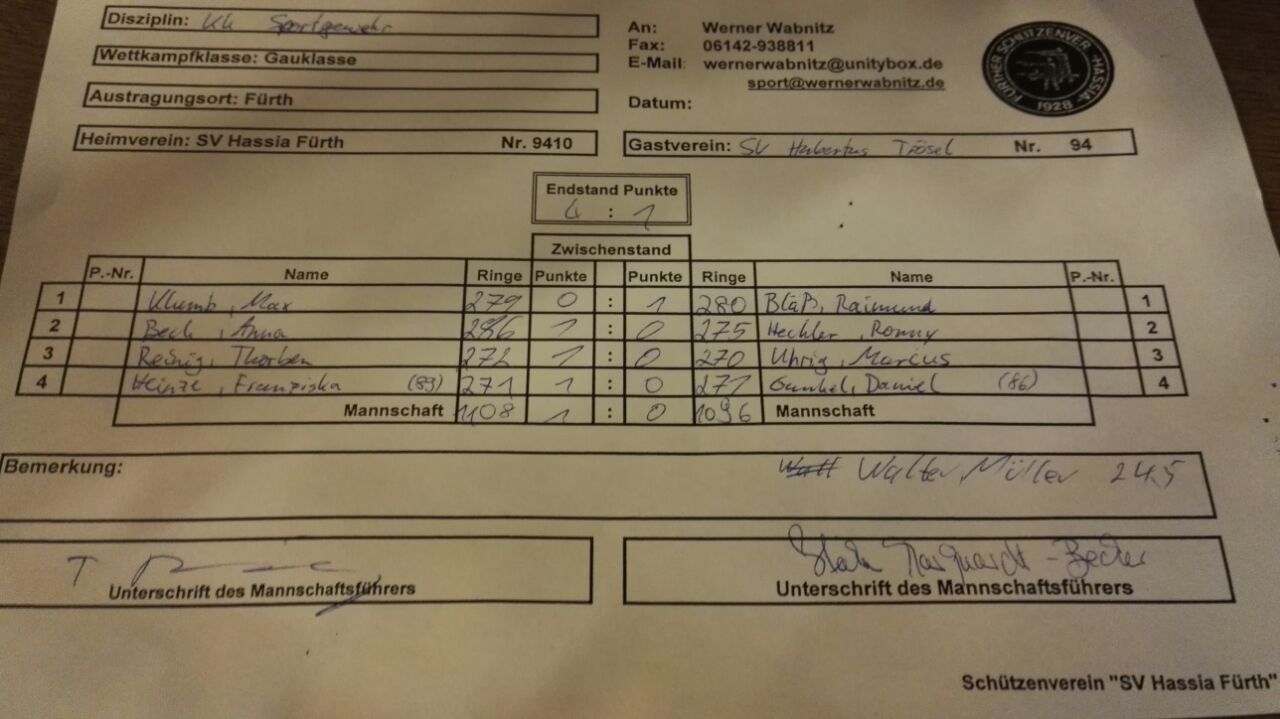 Disziplin: KK Sportgewehr
Wettkampfklasse: Gauklasse
Austragungsort: Fürth
Heimverein: SV Hassia Fürth Nr. 9410
An: Werner Wabnitz
Fax: 06142-938811
E-Mail: wernerwabnitz@unitybox.de
sport@wernerwabnitz.de
Datum:
FÜRTHER SCHÜTZENVER. HASSIA 1928
Gastverein: SV Hubertus Trösel Nr. 94
Endstand Punkte
4 : 1
Zwischenstand
P.-Nr. Name Ringe Punkte Punkte Ringe Name P.-Nr.
1 Klumb, Max 279 0 : 1 280 Bläß, Raimund 1
2 Beck, Anna 286 1 : 0 275 Heckler, Ronny 2
3 Reinig, Thorben 272 1 : 0 270 Uhrig, Marius 3
4 Heinze, Franziska (89) 271 1 : 0 271 Gunkel, Daniel (86) 4
Mannschaft 1108 1 : 0 1096 Mannschaft
Bemerkung: Walter, Müller 245
Unterschrift des Mannschaftsführers
Marquardt-Becker
Unterschrift des Mannschaftsführers
Schützenverein "SV Hassia Fürth"